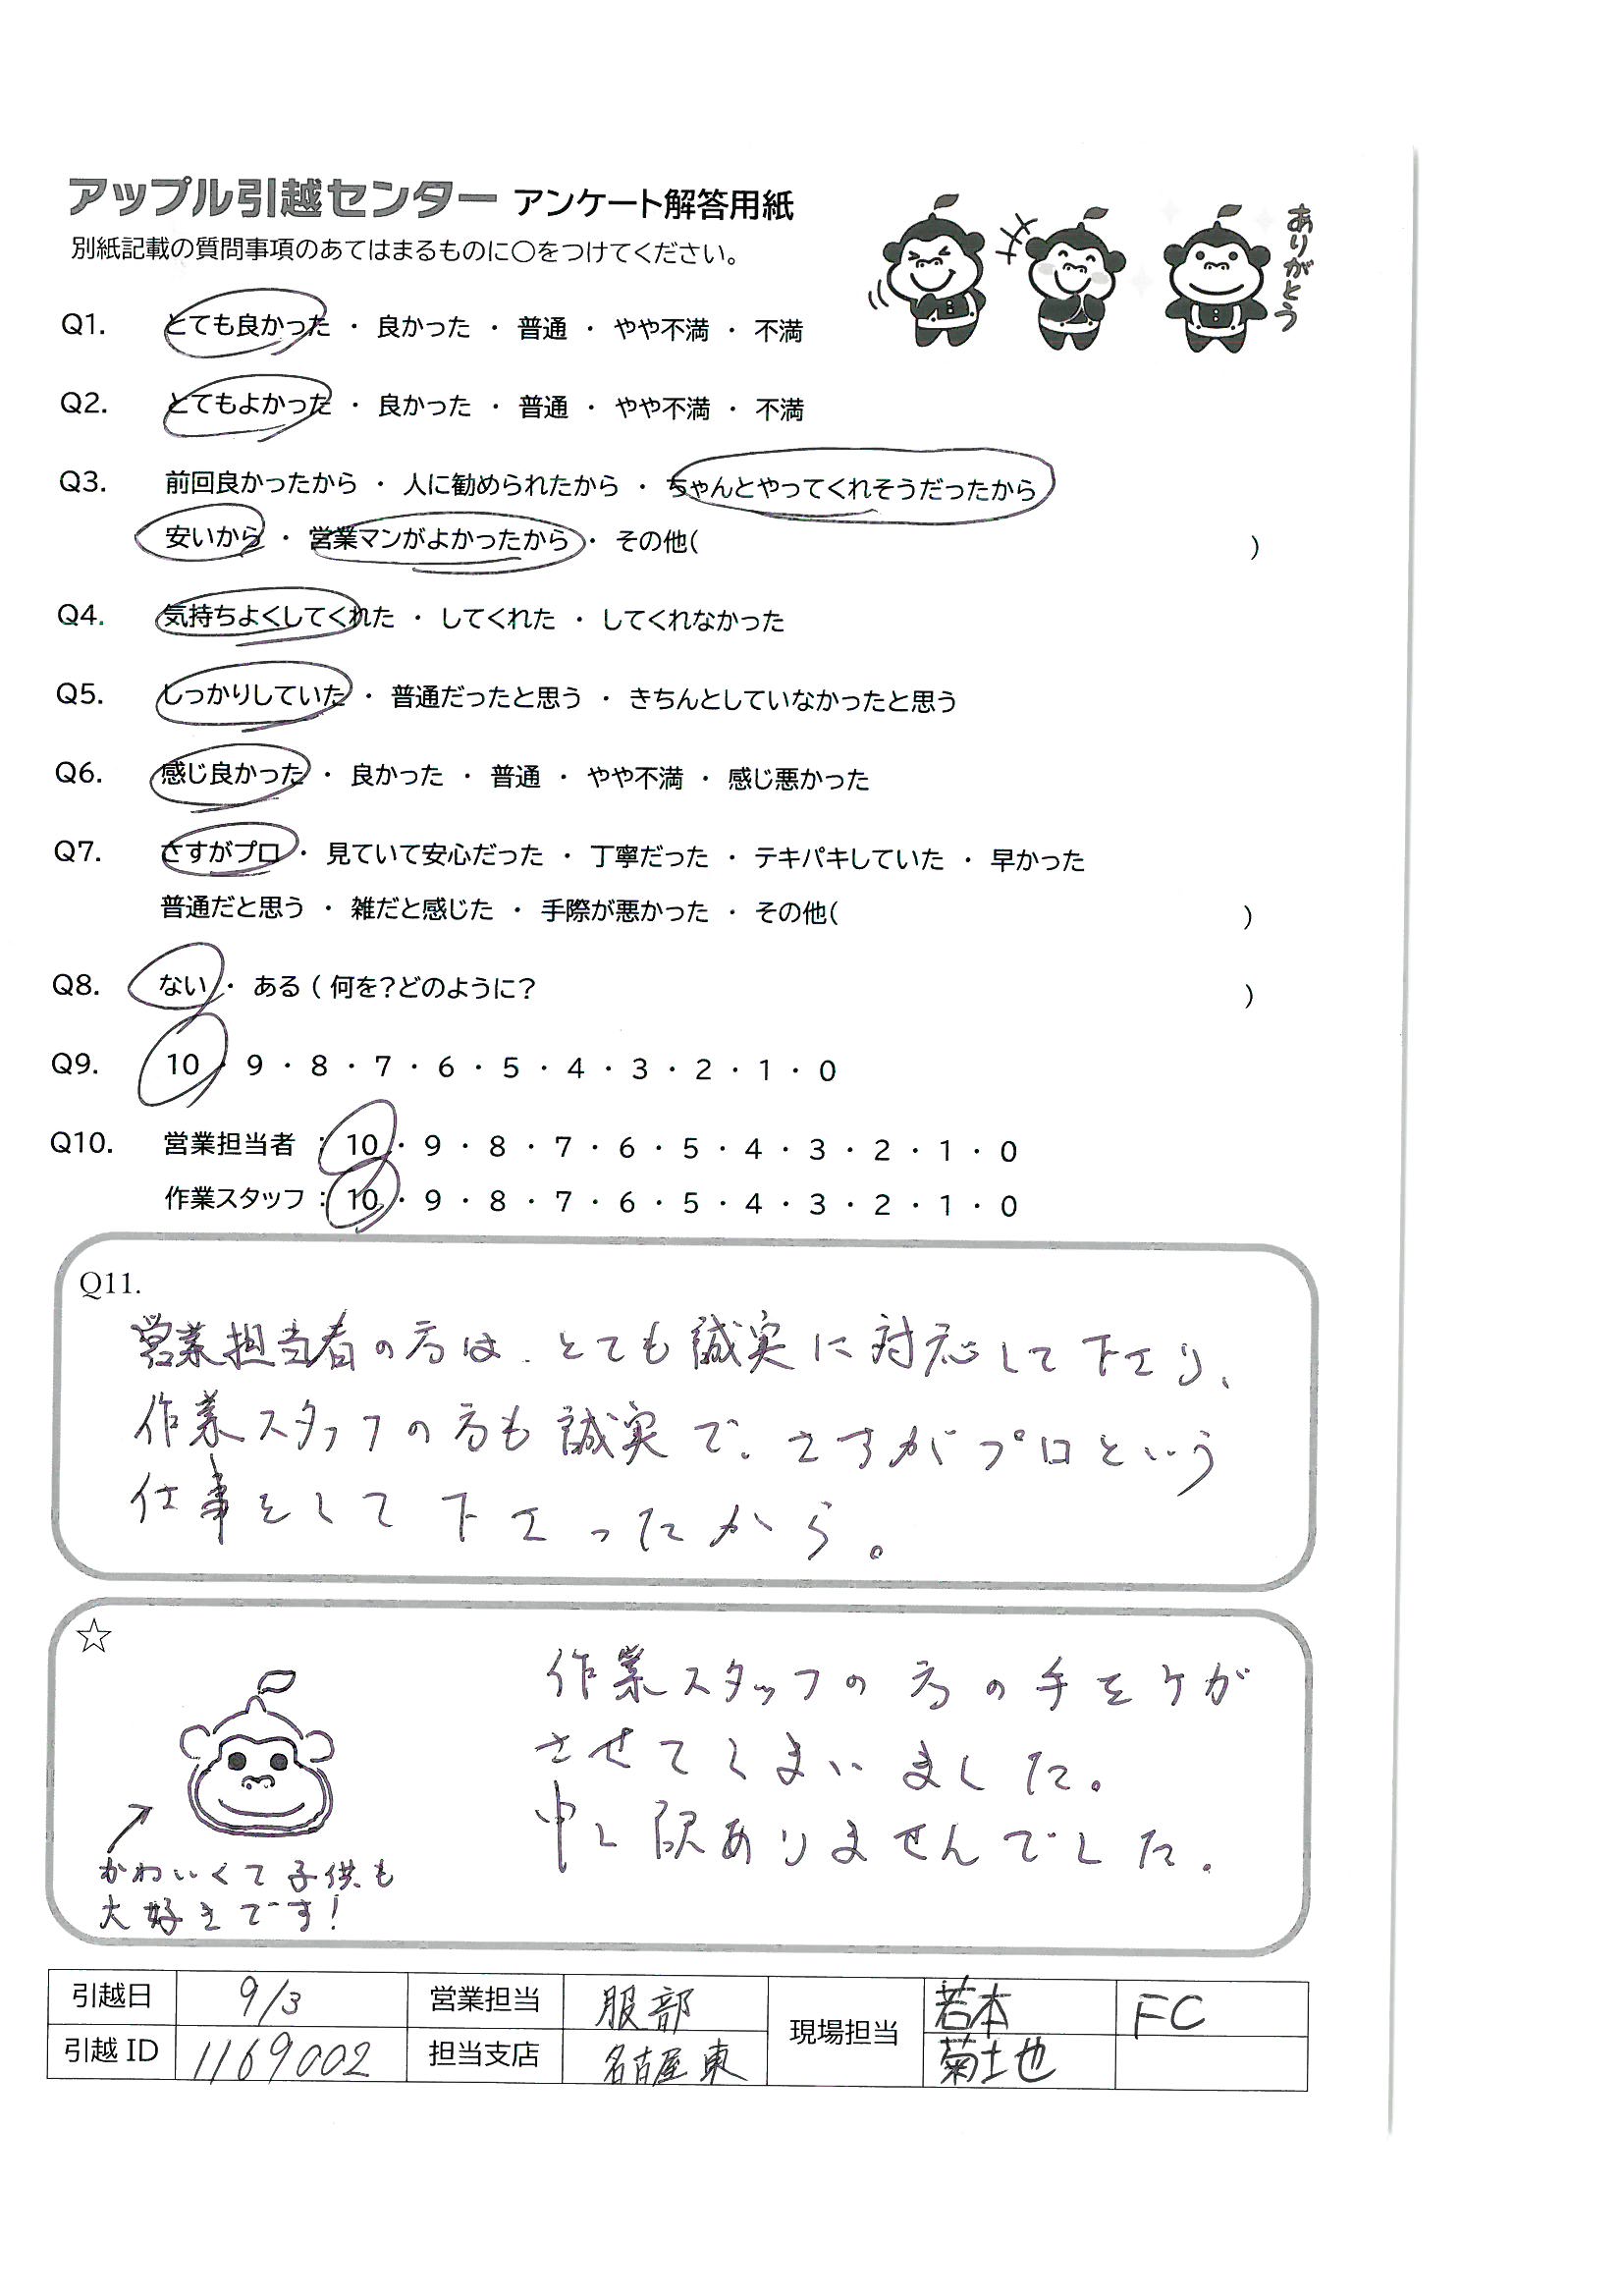 アップル引越センター アンケート解答用紙
別紙記載の質問事項のあてはまるものに〇をつけてください。
ありがとう
Q1. とても良かった ・ 良かった ・ 普通 ・ やや不満 ・ 不満
Q2. とてもよかった ・ 良かった ・ 普通 ・ やや不満 ・ 不満
Q3. 前回良かったから ・ 人に勧められたから ・ ちゃんとやってくれそうだったから
安いから ・ 営業マンがよかったから ・ その他( )
Q4. 気持ちよくしてくれた ・ してくれた ・ してくれなかった
Q5. しっかりしていた ・ 普通だったと思う ・ きちんとしていなかったと思う
Q6. 感じ良かった ・ 良かった ・ 普通 ・ やや不満 ・ 感じ悪かった
Q7. さすがプロ ・ 見ていて安心だった ・ 丁寧だった ・ テキパキしていた ・ 早かった
普通だと思う ・ 雑だと感じた ・ 手際が悪かった ・ その他( )
Q8. ない ・ ある ( 何を?どのように? )
Q9. 10 ・ 9 ・ 8 ・ 7 ・ 6 ・ 5 ・ 4 ・ 3 ・ 2 ・ 1 ・ 0
Q10. 営業担当者 : 10 ・ 9 ・ 8 ・ 7 ・ 6 ・ 5 ・ 4 ・ 3 ・ 2 ・ 1 ・ 0
作業スタッフ : 10 ・ 9 ・ 8 ・ 7 ・ 6 ・ 5 ・ 4 ・ 3 ・ 2 ・ 1 ・ 0
Q11.
営業担当者の方は、とても誠実に対応して下さり、
作業スタッフの方も誠実で、さすがプロという
仕事をして下さったから。
☆
作業スタッフの方の手をケガ
させてしまいました。
申し訳ありませんでした。
かわいくて子供も
大好きです!
引越日 9/3 営業担当 服部 現場担当 若本 FC
引越 ID 1169002 担当支店 名古屋東 菊土也